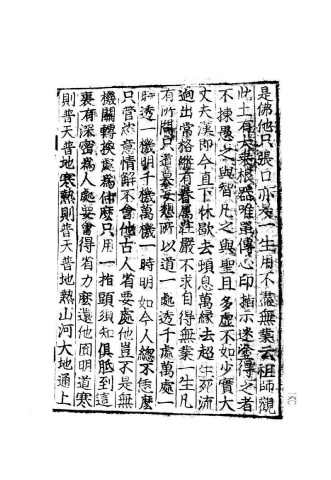 是佛他只張口亦去一生用不盡無業云祖師觀
此土有大乘根器唯單傳心印指示迷塗得之者
不揀愚之與智凡之與聖且多虛不如少實大
丈夫漢即今直下休歇去頓息萬緣去超生死流
迥出常格縱有眷屬莊嚴不求自得無業一生凡
有所問只道莫妄想所以道一處透千處萬處一
時透一機明千機萬機一時明如今人總不恁麼
只管恣意情解不會他古人省要處他豈不是無
機關轉換處爲什麼只用一指頭須知俱胝到這
裏有深密爲人處要會得省力麼還他圓明道寒
則普天普地寒熱則普天普地熱山河大地通上